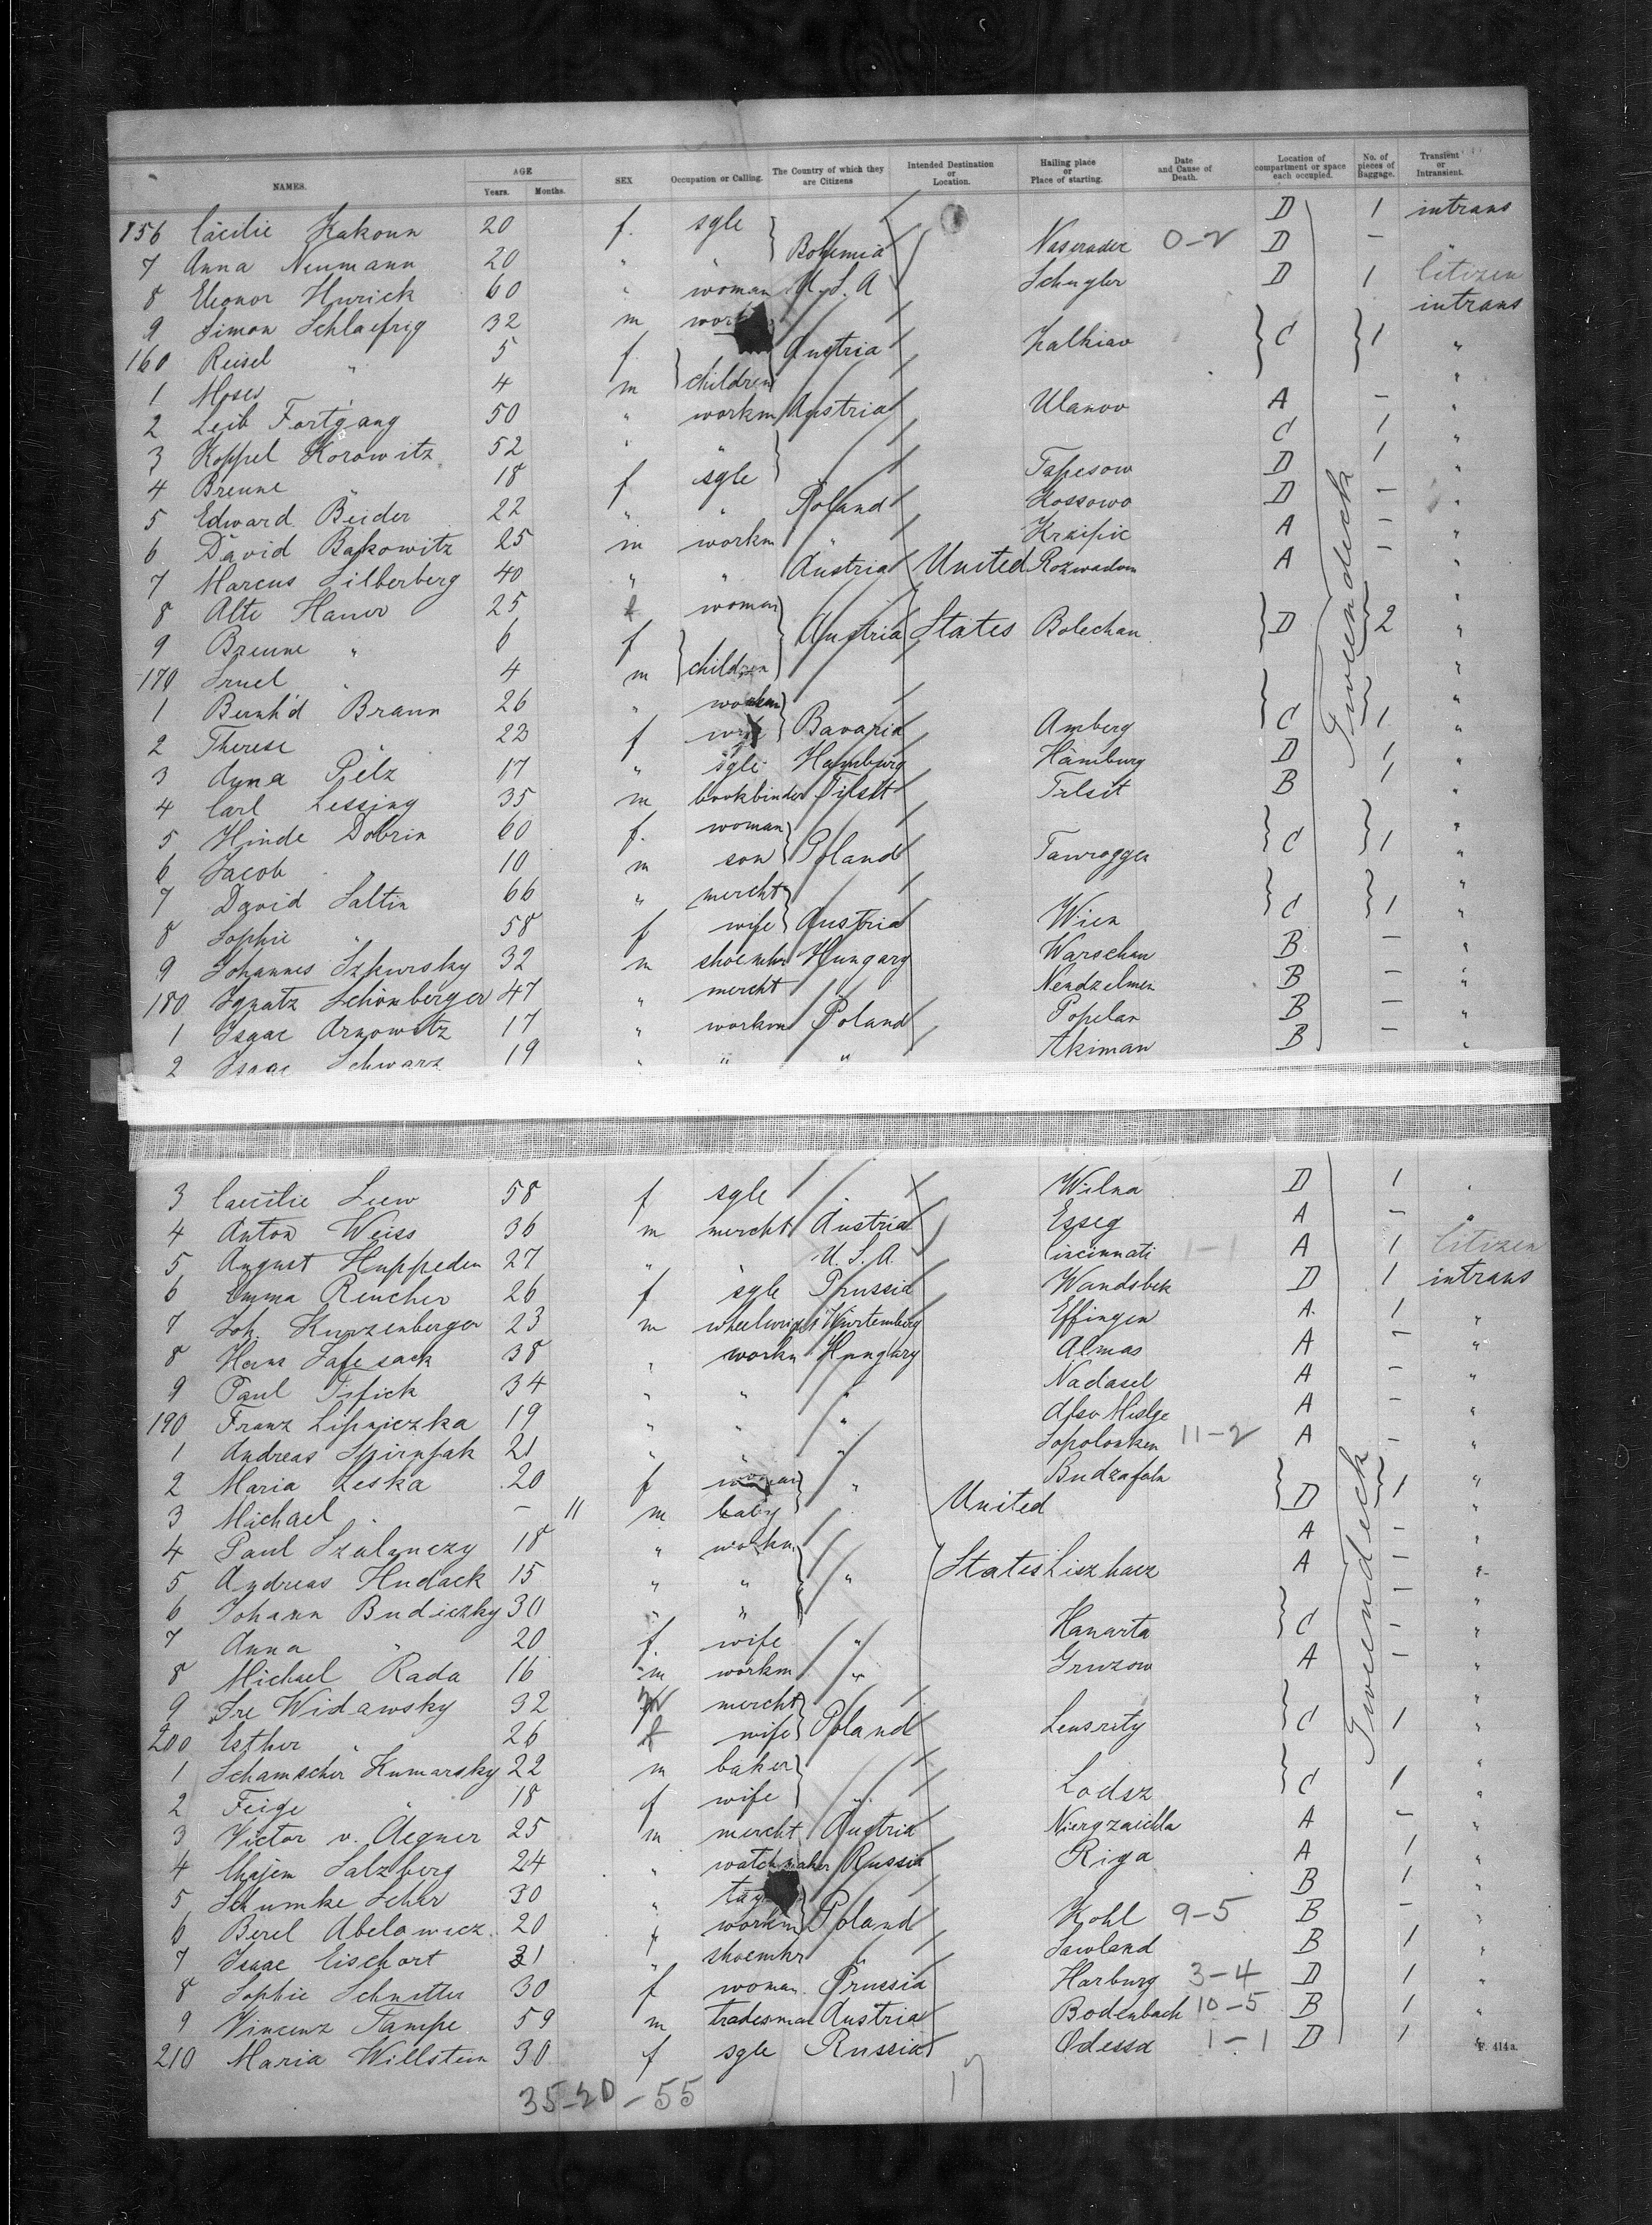 NAMES. AGE Years. Months. SEX Occupation or Calling. The Country of which they are Citizens Intended Destination or Location. Hailing place or Place of starting. Date and Cause of Death. Location of compartment or space each occupied. No. of pieces of Baggage. Transient or Intransient.
156 Cäcilie Kakoun 20 f. sgle D 1 intrans
7 Anna Neumann 20 " " Bohemia Naserader 0-2 D - "
8 Eleonor Hurick 60 " woman U.S.A Schuyler D 1 Citizen
9 Simon Schlaefrig 32 m intrans
160 Reisel " 5 f. children Austria Kalkiav C 1 "
1 Moses 4 m "
2 Leib Fortgang 50 " workm Austria Ulanov A - "
3 Koppel Korowitz 52 " " C 1 "
4 Breune " 18 f sgle Tapesow D 1 "
5 Edward Beider 22 " " Poland Kossowo D - "
6 David Bakowitz 25 m workm " A - "
7 Marcus Silberberg 40 " " Austria United Rozwadow A - "
8 Alte Hauer 25 f woman "
9 Breune " 6 f children Austria States Bolechau D 2 "
170 Sruel " 4 m "
1 Bernh'd Braun 26 " workm "
2 Therese " 23 f wife Bavaria Amberg C 1 "
3 Anna Pelz 17 " sgle Hamburg Hamburg D 1 "
4 Carl Lessing 35 m bookbinder Tilsit Tilsit B 1 "
5 Hinde Dobrin 60 f. woman "
6 Jacob " 10 m son Poland Tawroggen C 1 "
7 David Saltin 66 " mercht "
8 Sophie " 58 f wife Austria Wien C 1 "
9 Johannes Szkursky 32 m shoemkr Hungary Warschau B - "
180 Ignatz Schönberger 47 " mercht Nendzelmen B - "
1 Isaac Arnowitz 17 " workm Poland Popelan B - "
2 Isaac Schwarz 19 " " " Akiman B - "
Zwischendeck
3 Caecilie Liew 58 f sgle Wilna D 1 "
4 Anton Weiss 36 m mercht Austria Esseg A - "
5 August Huppeden 27 " U.S.A. Cincinnati 1-1 A 1 Citizen
6 Emma Reucher 26 f sgle Prussia Wandsbek D 1 intrans
7 Joh. Kurzenberger 23 m wheelwright Würtemberg Effingen A 1 "
8 Hans Safesack 38 " workm Hungary Almas A - "
9 Paul 34 " " " Nadasel A - "
190 Franz Lipniczka 19 " " " A - "
1 Andreas 21 " " " 11-2 A - "
2 Maria Leska 20 f woman " Budzafaln "
3 Michael " - 11 m baby United D 1 "
4 Paul Szalanczy 18 " workm A - "
5 Andreas Hudack 15 " " " States Liszhacz A - "
6 Johann Budiczky 30 " " - "
7 Anna " 20 f. wife " Hanarta C - "
8 Michael Rada 16 m workm " Gruzow A - "
9 Sre Widawsky 32 m mercht "
200 Esther " 26 f wife Poland C 1 "
1 Schamscher Kumarsky 22 m baker "
2 Feige " 18 f wife " Lodsz C 1 "
3 Victor v. Aegner 25 m mercht Austria A - "
4 Chajem Salzberg 24 " watchmaker Russia Riga A 1 "
5 Schumke Scher 30 " B 1 "
6 Berel Abelowicz 20 " workm Poland Kohl 9-5 B - "
7 Isaac Eischort 31 " shoemkr " Sawland B 1 "
8 Sophie Schnitter 30 f woman Prussia Harburg 3-4 D 1 "
9 Vincenz Tampe 59 m tradesman Austria Bodenbach 10-5 B 1 "
210 Maria Willstein 30 f sgle Russia Odessa 1-1 D 1 "
Zwischendeck
F. 414a.
35-20-55 17